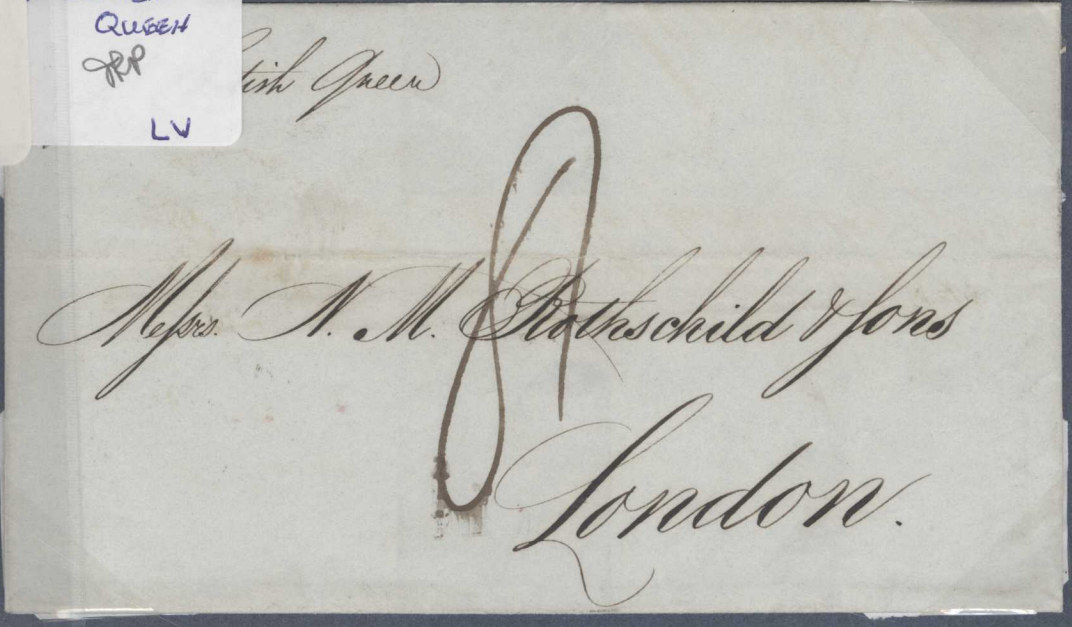 QUEEN
LV
Queen
8
Messrs. N. M. Rothschild & Sons
London.